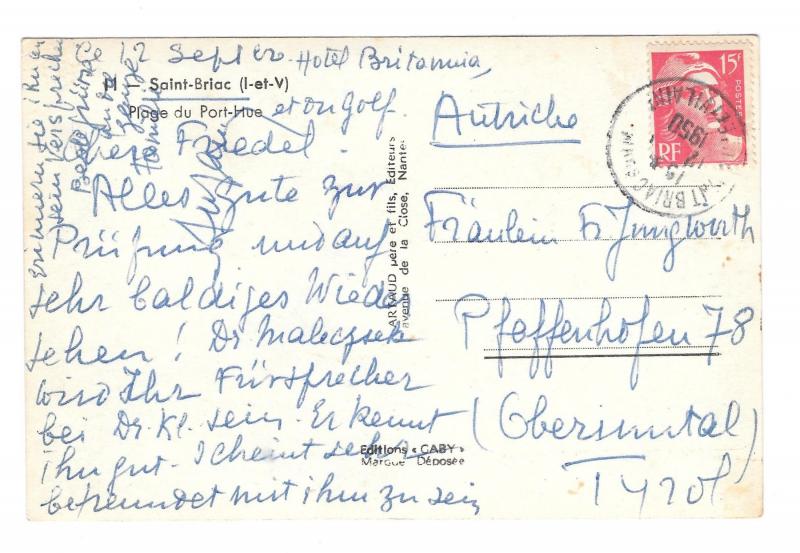 12 Sept 50. Hotel Britannia,
11 — Saint-Briac (I-et-V)
Plage du Port-Hue
et on golf.
Friedel.
Alles Gute zur
Prüfung und auf
sehr baldiges Wieder
sehen! Dr Maleczek
wird Ihr Fürsprecher
bei Dr. Kl. sein. Er kennt
ihn gut. Scheint sehr
befreundet mit ihm zu sein
Erinnern Sie ihn an
sein Versprechen
Beste Grüsse
Familie
ARTAUD père et fils, Editeurs
avenue de la Close, Nantes
Editions « CABY »
Marque Déposée
15F
POSTES
RF
1950
Autriche
Fräulein F. Jungwirth
Pfaffenhofen 78
(Oberinntal)
Tyrol